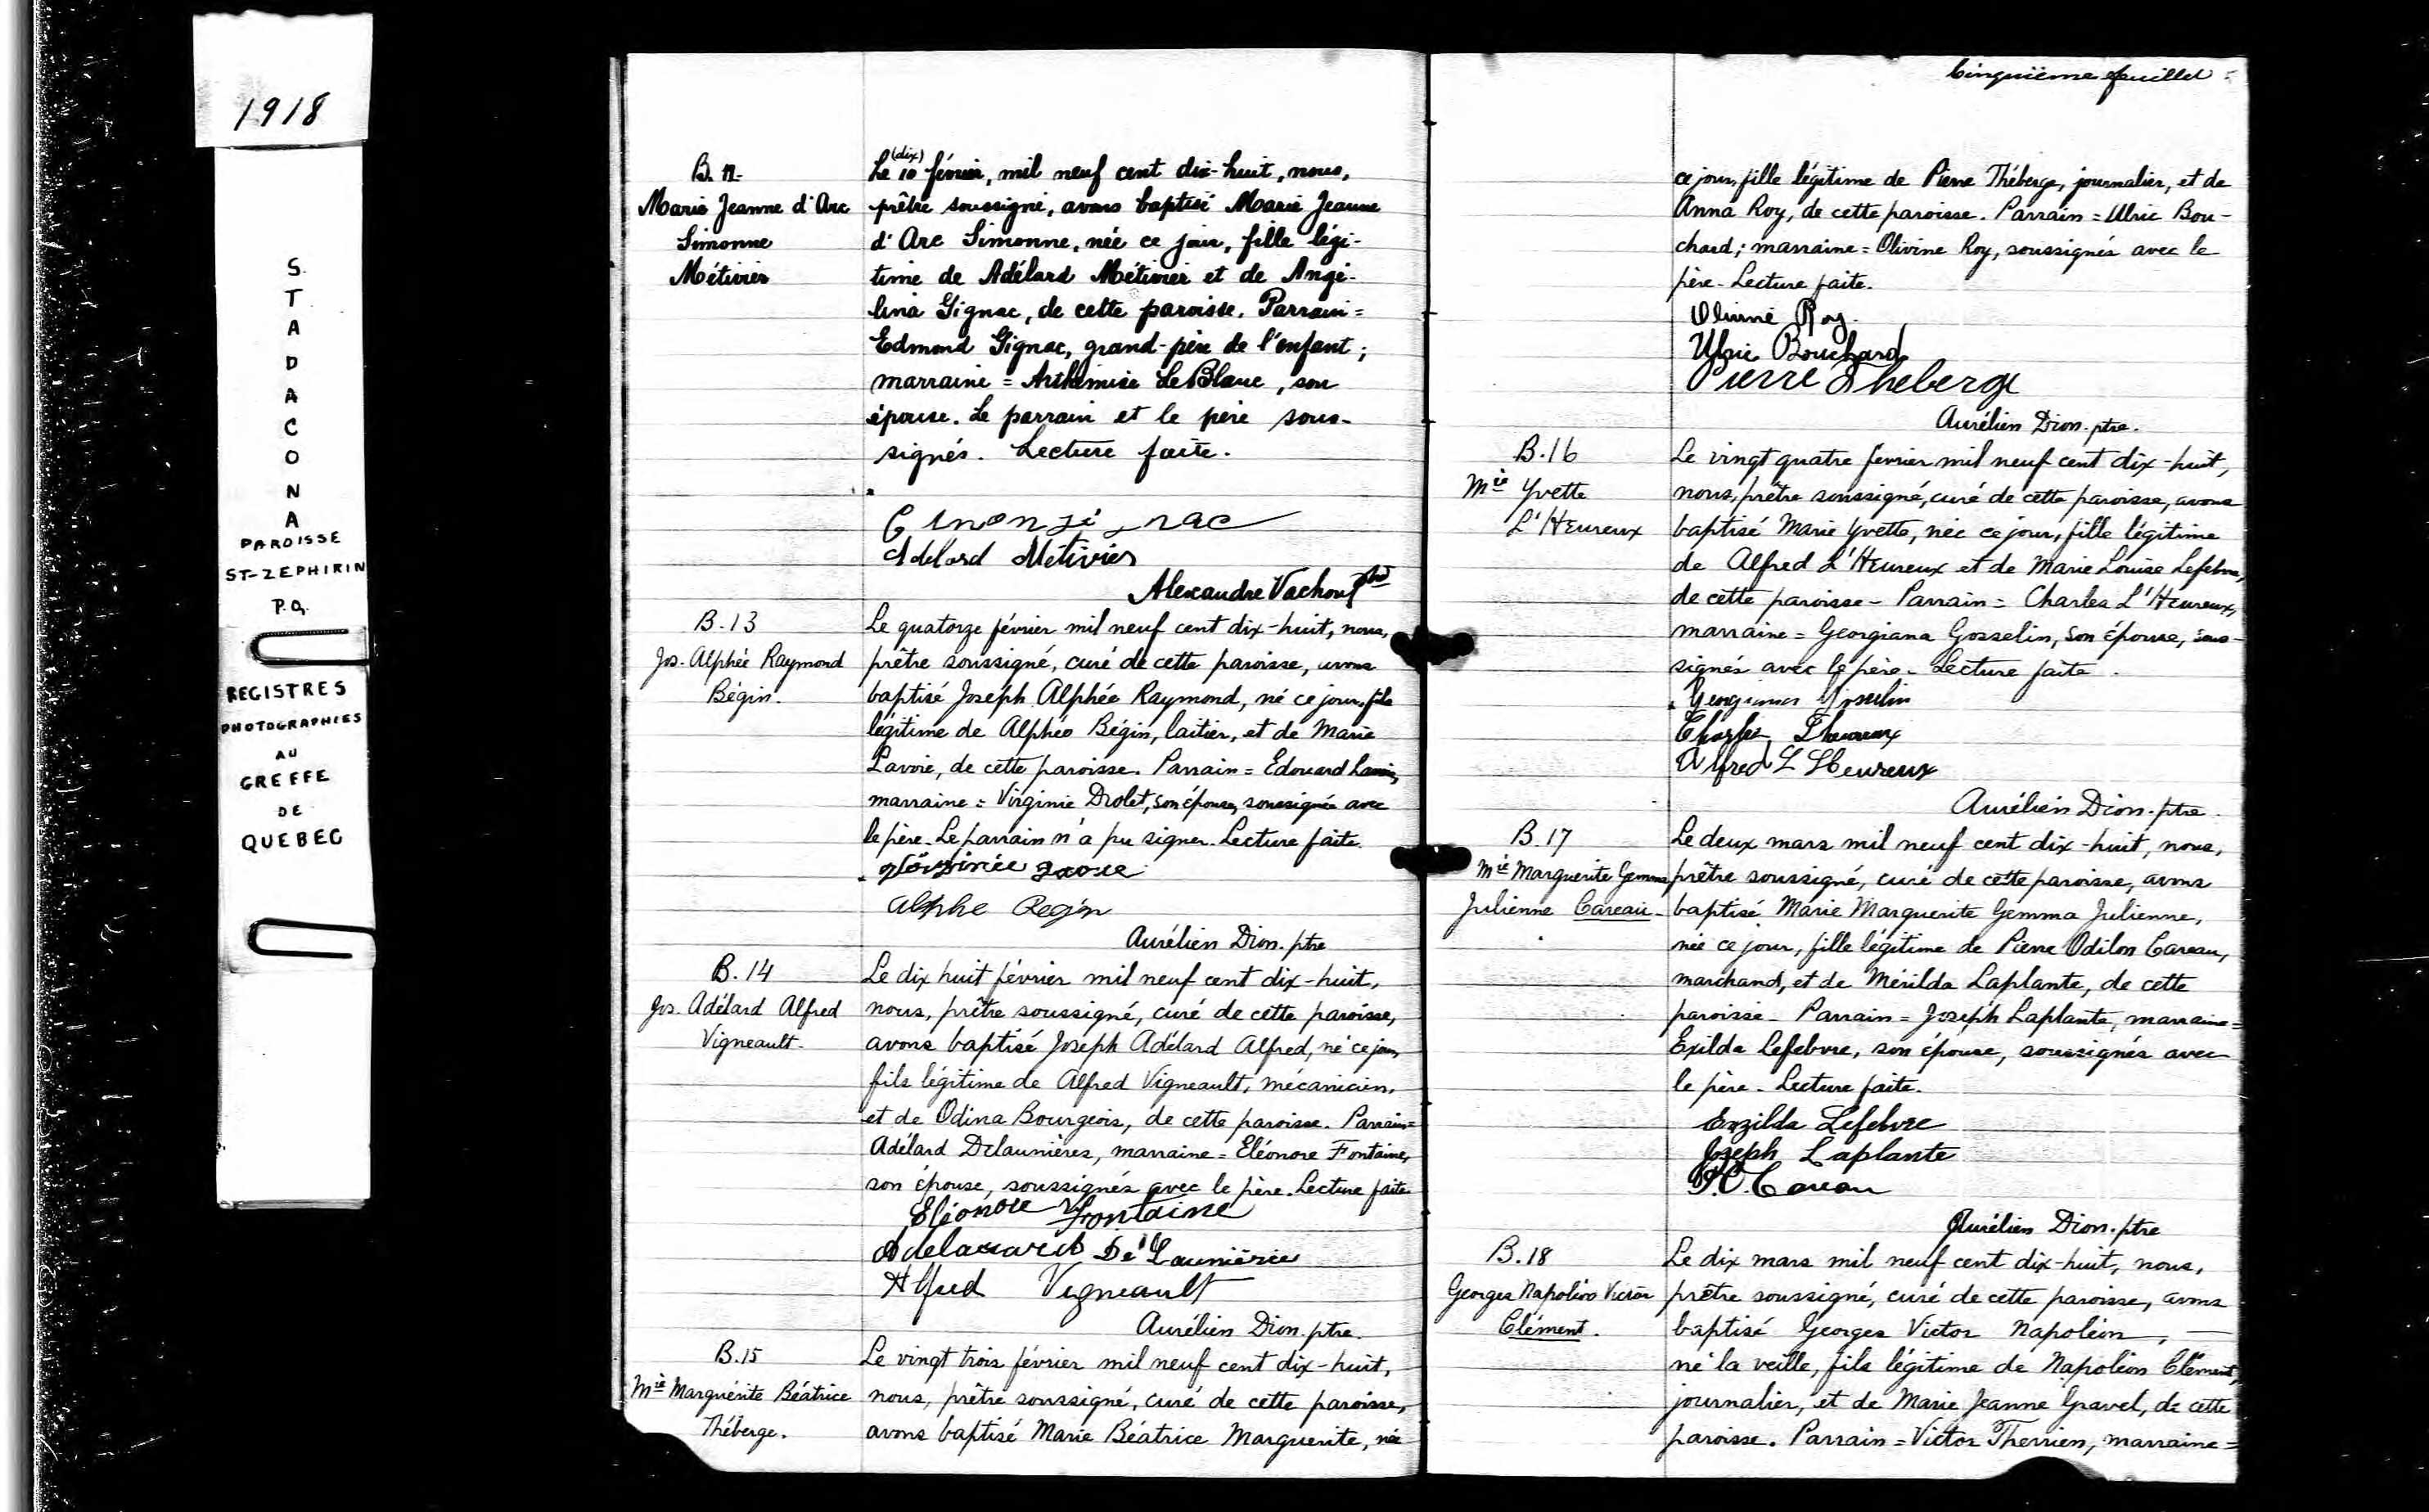 1918
S
T
A
D
A
C
O
N
A
PAROISSE
ST-ZEPHIRIN
P.Q.
REGISTRES
PHOTOGRAPHIES
AU
GREFFE
DE
QUEBEC
B. 12
Marie Jeanne d'Arc
Simonne
Métivier
Le 10 (dix) février, mil neuf cent dix-huit, nous,
prêtre soussigné, avons baptisé Marie Jeanne
d'Arc Simonne, née ce jour, fille légi-
time de Adélard Métivier et de Angé-
lina Gignac, de cette paroisse. Parrain =
Edmond Gignac, grand-père de l'enfant;
marraine = Arthémise LeBlanc, son
épouse. Le parrain et le père sous-
signés. Lecture faite.
Adelard Métivier
Alexandre Vachon ptre
B. 13
Jos. Alphée Raymond
Bégin.
Le quatorze février mil neuf cent dix-huit, nous,
prêtre soussigné, curé de cette paroisse, avons
baptisé Joseph Alphée Raymond, né ce jour, fils
légitime de Alphée Bégin, laitier, et de Marie
Lavoie, de cette paroisse. Parrain = Edouard Lavoie,
marraine = Virginie Drolet, son épouse, soussignée avec
le père. Le parrain n'a pu signer. Lecture faite.
Alphe Begin
Aurélien Dion. ptre
B. 14
Jos. Adélard Alfred
Vigneault.
Le dix huit février mil neuf cent dix-huit,
nous, prêtre soussigné, curé de cette paroisse,
avons baptisé Joseph Adélard Alfred, né ce jour,
fils légitime de Alfred Vigneault, mécanicien,
et de Odina Bourgeois, de cette paroisse. Parrain =
Adélard Delaunières, marraine = Eléonore Fontaine,
son épouse, soussignés avec le père. Lecture faite.
Eléonore Fontaine
Adelaward De Launière
Alfred Vigneault
Aurélien Dion. ptre.
B. 15
Mie Marguérite Béatrice
Théberge.
Le vingt trois février mil neuf cent dix-huit,
nous, prêtre soussigné, curé de cette paroisse,
avons baptisé Marie Béatrice Marguerite, née
Cinquième feuillet
ce jour, fille légitime de Pierre Théberge, journalier, et de
Anna Roy, de cette paroisse. Parrain = Ulric Bou-
chard; marraine = Olivine Roy, soussignés avec le
père. Lecture faite.
Olivine Roy.
Ulric Bouchard
Pierre Theberge
Aurélien Dion. ptre.
B. 16
Mie Yvette
L'Heureux
Le vingt quatre février mil neuf cent dix-huit,
nous, prêtre soussigné, curé de cette paroisse, avons
baptisé Marie Yvette, née ce jour, fille légitime
de Alfred L'Heureux et de Marie Louise Lefebvre,
de cette paroisse - Parrain = Charles L'Heureux,
marraine = Georgiana Gosselin, son épouse, sous-
signés avec le père. Lecture faite.
Georgiana Gosselin
Charles Lheureux
Alfred L'Heureux
Aurélien Dion. ptre.
B. 17
Mie Marguerite Gemma
Julienne Careau
Le deux mars mil neuf cent dix-huit, nous,
prêtre soussigné, curé de cette paroisse, avons
baptisé Marie Marguerite Gemma Julienne,
née ce jour, fille légitime de Pierre Odilon Careau,
marchand, et de Mérilda Laplante, de cette
paroisse - Parrain = Joseph Laplante, marraine =
Exilda Lefebvre, son épouse, soussignés avec
le père. Lecture faite.
Exzilda Lefebvre
Joseph Laplante
P.O. Careau
Aurélien Dion. ptre
B. 18
Georges Napoléon Victor
Clément.
Le dix mars mil neuf cent dix-huit, nous,
prêtre soussigné, curé de cette paroisse, avons
baptisé Georges Victor Napoléon, —
né la veille, fils légitime de Napoléon Clément,
journalier, et de Marie Jeanne Gravel, de cette
paroisse. Parrain = Victor Therrien, marraine =